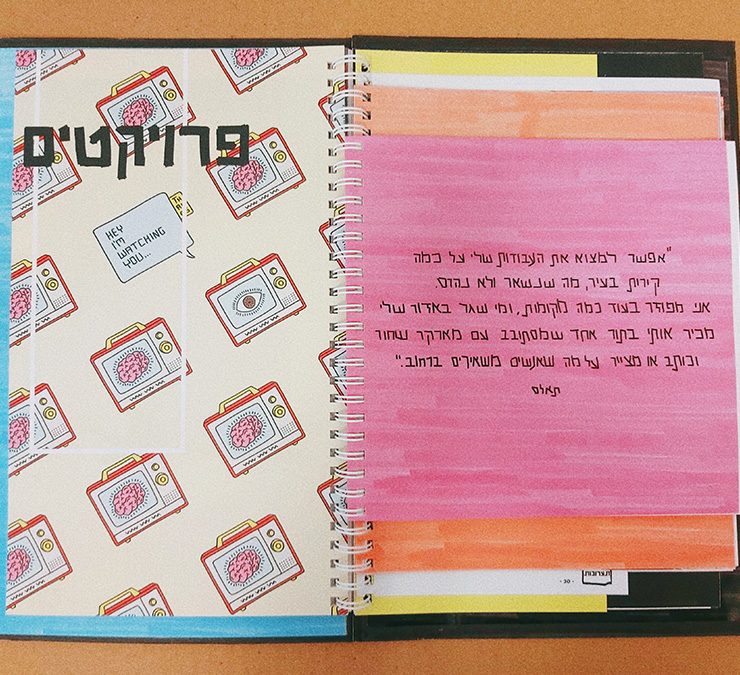 פרויקטים
HEY
I'M
WATCHING
YOU...
"אפשר למצוא את העבודות שלי על כמה
קירות בעיר, מה שנשאר ולא נהרס.
אני מפוזר בעוד כמה מקומות, ומי שגר באזור שלי
מכיר אותי בתור אחד שמסתובב עם מארקר שחור
וכותב או מצייר על מה שאנשים משאירים ברחוב."
תאלס
- 30 -